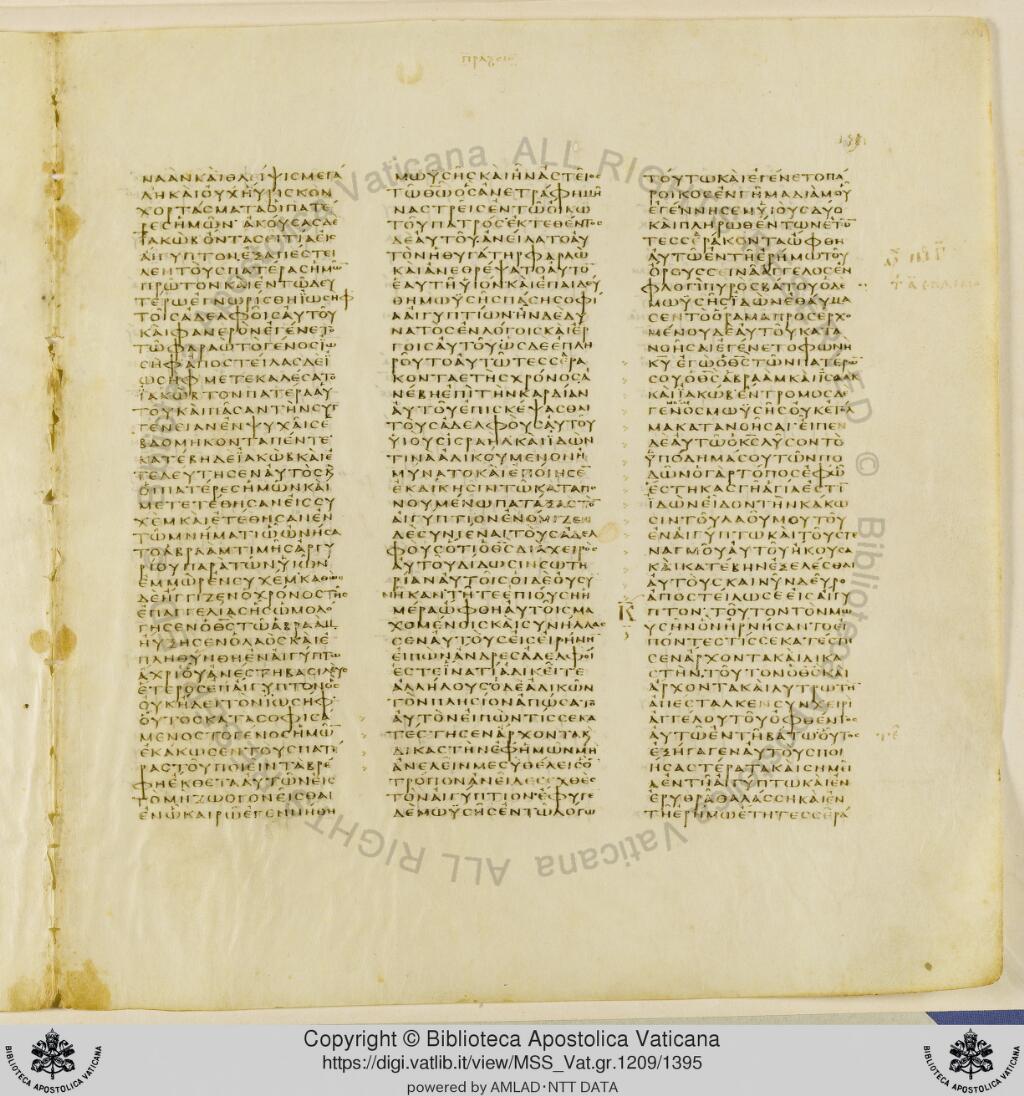 πραξεις
ΝΑΑΝΚΑΙΘΛΕΙΨΙΣΜΕΓΑ
ΛΗΚΑΙΟΥΧΗΥΡΙΣΚΟΝ
ΧΟΡΤΑΣΜΑΤΑΟΙΠΑΤΕ
ΡΕΣΗΜΩΝ ΑΚΟΥΣΑΣΔΕ
ΙΑΚΩΒΟΝΤΑΣΕΙΤΙΑΕΙΣ
ΑΙΓΥΠΤΟΝΕΞΑΠΕΣΤΕΙ
ΛΕΝΤΟΥΣΠΑΤΕΡΑΣΗΜΩ
ΠΡΩΤΟΝΚΑΙΕΝΤΩΔΕΥ
ΤΕΡΩΕΓΝΩΡΙΣΘΗΙΩΣΗΦ
ΤΟΙΣΑΔΕΛΦΟΙΣΑΥΤΟΥ
ΚΑΙΦΑΝΕΡΟΝΕΓΕΝΕΤΟ
ΤΩΦΑΡΑΩΤΟΓΕΝΟΣΙΩ
ΣΗΦΑΠΟΣΤΕΙΛΑΣΔΕΙ
ΩΣΗΦΜΕΤΕΚΑΛΕΣΑΤΟ
ΙΑΚΩΒΤΟΝΠΑΤΕΡΑΑΥ
ΤΟΥΚΑΙΠΑΣΑΝΤΗΝΣΥΓ
ΓΕΝΕΙΑΝΕΝΨΥΧΑΙΣΕ
ΒΔΟΜΗΚΟΝΤΑΠΕΝΤΕ
ΚΑΤΕΒΗΔΕΙΑΚΩΒΚΑΙΕ
ΤΕΛΕΥΤΗΣΕΝΑΥΤΟΣΚ
ΟΙΠΑΤΕΡΕΣΗΜΩΝΚΑΙ
ΜΕΤΕΤΕΘΗΣΑΝΕΙΣΣΥ
ΧΕΜΚΑΙΕΤΕΘΗΣΑΝΕΝ
ΤΩΜΝΗΜΑΤΙΩΩΝΗΣΑ
ΤΟΑΒΡΑΑΜΤΙΜΗΣΑΡΓΥ
ΡΙΟΥΠΑΡΑΤΩΝΥΙΩΝ
ΕΜΜΩΡΕΝΣΥΧΕΜΚΑΘΩΣ
ΔΕΗΓΓΙΖΕΝΟΧΡΟΝΟΣΤΗΣ
ΕΠΑΓΓΕΛΙΑΣΗΣΩΜΟΛΟ
ΓΗΣΕΝΟΘΣΤΩΑΒΡΑΑΜ
ΗΥΞΗΣΕΝΟΛΑΟΣΚΑΙΕ
ΠΛΗΘΥΝΘΗΕΝΑΙΓΥΠΤΩ
ΑΧΡΙΟΥΑΝΕΣΤΗΒΑΣΙΛΕΥΣ
ΕΤΕΡΟΣΕΠΑΙΓΥΠΤΟΝΟΣ
ΟΥΚΗΔΕΙΤΟΝΙΩΣΗΦ
ΟΥΤΟΣΚΑΤΑΣΟΦΙΣΑ
ΜΕΝΟΣΤΟΓΕΝΟΣΗΜΩ
ΕΚΑΚΩΣΕΝΤΟΥΣΠΑΤΕ
ΡΑΣΤΟΥΠΟΙΕΙΝΤΑΒΡΕ
ΦΗΕΚΘΕΤΑΑΥΤΩΝΕΙΣ
ΤΟΜΗΖΩΟΓΟΝΕΙΣΘΑΙ
ΕΝΩΚΑΙΡΩΕΓΕΝΝΗΘΗ
ΜΩΥΣΗΣΚΑΙΗΝΑΣΤΕΙΟΣ
ΤΩΘΩΟΣΑΝΕΤΡΑΦΗΜΗ
ΝΑΣΤΡΕΙΣΕΝΤΩΟΙΚΩ
ΤΟΥΠΑΤΡΟΣΕΚΤΕΘΕΝΤΟΣ
ΔΕΑΥΤΟΥΑΝΕΙΛΑΤΟΑΥ
ΤΟΝΗΘΥΓΑΤΗΡΦΑΡΑΩ
ΚΑΙΑΝΕΘΡΕΨΑΤΟΑΥΤΟ
ΕΑΥΤΗΥΙΟΝΚΑΙΕΠΑΙΔΕΥ
ΘΗΜΩΥΣΗΣΠΑΣΗΣΟΦΙ
ΑΑΙΓΥΠΤΙΩΝΗΝΔΕΔΥ
ΝΑΤΟΣΕΝΛΟΓΟΙΣΚΑΙΕΡ
ΓΟΙΣΑΥΤΟΥΩΣΔΕΕΠΛΗ
ΡΟΥΤΟΑΥΤΩΤΕΣΣΕΡΑ
ΚΟΝΤΑΕΤΗΣΧΡΟΝΟΣΑ
ΝΕΒΗΕΠΙΤΗΝΚΑΡΔΙΑΝ
ΑΥΤΟΥΕΠΙΣΚΕΨΑΣΘΑΙ
ΤΟΥΣΑΔΕΛΦΟΥΣΑΥΤΟΥ
ΥΙΟΥΣΙΣΡΑΗΛΚΑΙΙΔΩΝ
ΤΙΝΑΑΔΙΚΟΥΜΕΝΟΝΗ
ΜΥΝΑΤΟΚΑΙΕΠΟΙΗΣΕ
ΕΚΔΙΚΗΣΙΝΤΩΚΑΤΑΠΟ
ΝΟΥΜΕΝΩΠΑΤΑΞΑΣΤΟ
ΑΙΓΥΠΤΙΟΝΕΝΟΜΙΖΕΝ
ΔΕΣΥΝΙΕΝΑΙΤΟΥΣΑΔΕΛ
ΦΟΥΣΟΤΙΟΘΣΔΙΑΧΕΙΡΟΣ
ΑΥΤΟΥΔΙΔΩΣΙΝΣΩΤΗ
ΡΙΑΝΑΥΤΟΙΣΟΙΔΕΟΥΣΥ
ΝΗΚΑΝΤΗΤΕΕΠΙΟΥΣΗΗ
ΜΕΡΑΩΦΘΗΑΥΤΟΙΣΜΑ
ΧΟΜΕΝΟΙΣΚΑΙΣΥΝΗΛΛΑΣ
ΣΕΝΑΥΤΟΥΣΕΙΣΕΙΡΗΝΗ
ΕΙΠΩΝΑΝΔΡΕΣΑΔΕΛΦΟΙ
ΕΣΤΕΙΝΑΤΙΑΔΙΚΕΙΤΕ
ΑΛΛΗΛΟΥΣΟΔΕΑΔΙΚΩΝ
ΤΟΝΠΛΗΣΙΟΝΑΠΩΣΑΤΟ
ΑΥΤΟΝΕΙΠΩΝΤΙΣΣΕΚΑ
ΤΕΣΤΗΣΕΝΑΡΧΟΝΤΑΚ
ΔΙΚΑΣΤΗΝΕΦΗΜΩΝΜΗ
ΑΝΕΛΕΙΝΜΕΣΥΘΕΛΕΙΣΟ
ΤΡΟΠΟΝΑΝΕΙΛΕΣΕΧΘΕΣ
ΤΟΝΑΙΓΥΠΤΙΟΝΕΦΥΓΕ
ΔΕΜΩΥΣΗΣΕΝΤΩΛΟΓΩ
ΤΟΥΤΩΚΑΙΕΓΕΝΕΤΟΠΑ
ΡΟΙΚΟΣΕΝΓΗΜΑΔΙΑΜΟΥ
ΕΓΕΝΝΗΣΕΝΥΙΟΥΣΔΥΟ
ΚΑΙΠΛΗΡΩΘΕΝΤΩΝΕΤΩ
ΤΕΣΣΕΡΑΚΟΝΤΑΩΦΘΗ
ΑΥΤΩΕΝΤΗΕΡΗΜΩΤΟΥ
ΟΡΟΥΣΣΕΙΝΑΑΓΓΕΛΟΣΕΝ
ΦΛΟΓΙΠΥΡΟΣΒΑΤΟΥΟΔΕ
ΜΩΥΣΗΣΙΔΩΝΕΘΑΥΜΑ
ΣΕΝΤΟΟΡΑΜΑΠΡΟΣΕΡΧΟ
ΜΕΝΟΥΔΕΑΥΤΟΥΚΑΤΑ
ΝΟΗΣΑΙΕΓΕΝΕΤΟΦΩΝΗ
ΚΥ ΕΓΩΟΘΣΤΩΝΠΑΤΕΡΩ
ΣΟΥΟΘΣΑΒΡΑΑΜΚΑΙΙΣΑΑΚ
ΚΑΙΙΑΚΩΒΕΝΤΡΟΜΟΣΔΕ
ΓΕΝΟΜΕΝΟΣΜΩΥΣΗΣΟΥΚΕΤΟΛ
ΜΑΚΑΤΑΝΟΗΣΑΙ ΕΙΠΕΝ
ΔΕΑΥΤΩΟΚΣΛΥΣΟΝΤΟ
ΥΠΟΔΗΜΑΣΟΥΤΩΝΠΟ
ΔΩΝΟΓΑΡΤΟΠΟΣΕΦΩ
ΕΣΤΗΚΑΣΓΗΑΓΙΑΕΣΤΙ
ΙΔΩΝΕΙΔΟΝΤΗΝΚΑΚΩ
ΣΙΝΤΟΥΛΑΟΥΜΟΥΤΟΥ
ΕΝΑΙΓΥΠΤΩΚΑΙΤΟΥΣΤΕ
ΝΑΓΜΟΥΑΥΤΟΥΗΚΟΥΣΑ
ΚΑΙΚΑΤΕΒΗΝΕΞΕΛΕΣΘΑΙ
ΑΥΤΟΥΣΚΑΙΝΥΝΔΕΥΡΟ
ΑΠΟΣΤΕΙΛΩΣΕΕΙΣΑΙΓΥ
ΠΤΟΝ ΤΟΥΤΟΝΤΟΝΜΩ
ΥΣΗΝΟΝΗΡΝΗΣΑΝΤΟΕΙ
ΠΟΝΤΕΣΤΙΣΣΕΚΑΤΕΣΤΗ
ΣΕΝΑΡΧΟΝΤΑΚΑΙΔΙΚΑ
ΣΤΗΝ ΤΟΥΤΟΝΟΘΣΚΑΙ
ΑΡΧΟΝΤΑΚΑΙΛΥΤΡΩΤΗ
ΑΠΕΣΤΑΛΚΕΝΣΥΝΧΕΙΡΙ
ΑΓΓΕΛΟΥΤΟΥΟΦΘΕΝΤΟΣ
ΑΥΤΩΕΝΤΗΒΑΤΩΟΥΤΟΣ
ΕΞΗΓΑΓΕΝΑΥΤΟΥΣΠΟΙ
ΗΣΑΣΤΕΡΑΤΑΚΑΙΣΗΜΕΙ
ΑΕΝΤΗΑΙΓΥΠΤΩΚΑΙΕΝ
ΕΡΥΘΡΑΘΑΛΑΣΣΗΚΑΙΕΝ
ΤΗΕΡΗΜΩΕΤΗΤΕΣΣΕΡΑ
Copyright © Biblioteca Apostolica Vaticana
https://digi.vatlib.it/view/MSS_Vat.gr.1209/1395
powered by AMLAD·NTT DATA
BIBLIOTECA APOSTOLICA VATICANA
BIBLIOTECA APOSTOLICA VATICANA